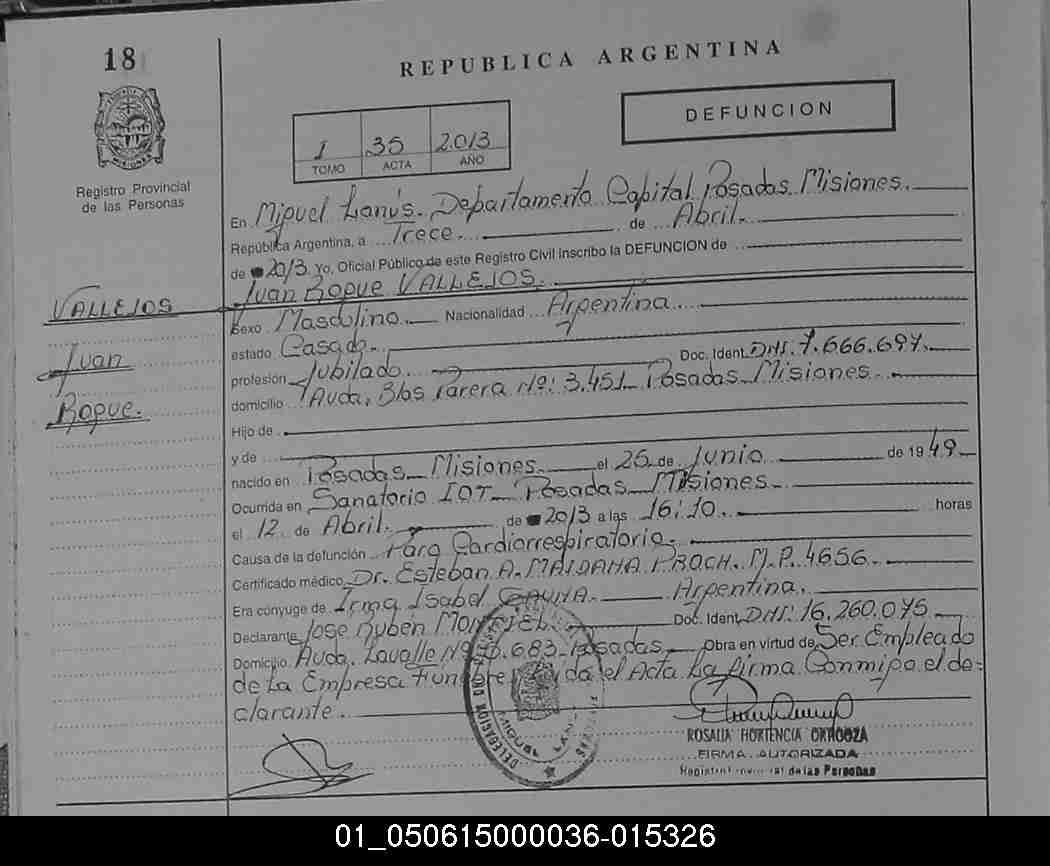 18
REPUBLICA ARGENTINA
DEFUNCION
1 35 2.013
TOMO ACTA AÑO
Registro Provincial
de las Personas
En Miguel Lanús. Departamento Capital Posadas Misiones.
República Argentina, a Trece de Abril.
de 2013 Yo, Oficial Público de este Registro Civil inscribo la DEFUNCION de
Juan Roque VALLEJOS.
VALLEJOS
Juan
Roque.
sexo Masculino. Nacionalidad Argentina
estado Casado.
profesión Jubilado. Doc. Ident. DNI. 7.666.697.
domicilio Avda. Blas Parera Nº: 3.451 Posadas Misiones.
Hijo de
y de
nacido en Posadas Misiones. el 25 de Junio de 1949.
Ocurrida en Sanatorio IOT Posadas Misiones
el 12 de Abril. de 2013 a las 16:10. horas
Causa de la defunción Paro Cardiorrespiratorio.
Certificado médico Dr. Esteban A. MAIDANA PROCH. M.P. 4656.
Era cónyuge de Irma Isabel Argentina.
Declarante José Rubén Doc. Ident. DNI. 16.260.075
Domicilio Avda. Lavalle Nº 683 Posadas Obra en virtud de Ser Empleado
de La Empresa Fúnebre el Acta La firma Conmigo el de=
clarante.
DELEGACION MIGUEL LANUS
ROSALIA HORTENCIA
FIRMA AUTORIZADA
de las Personas
01_050615000036-015326